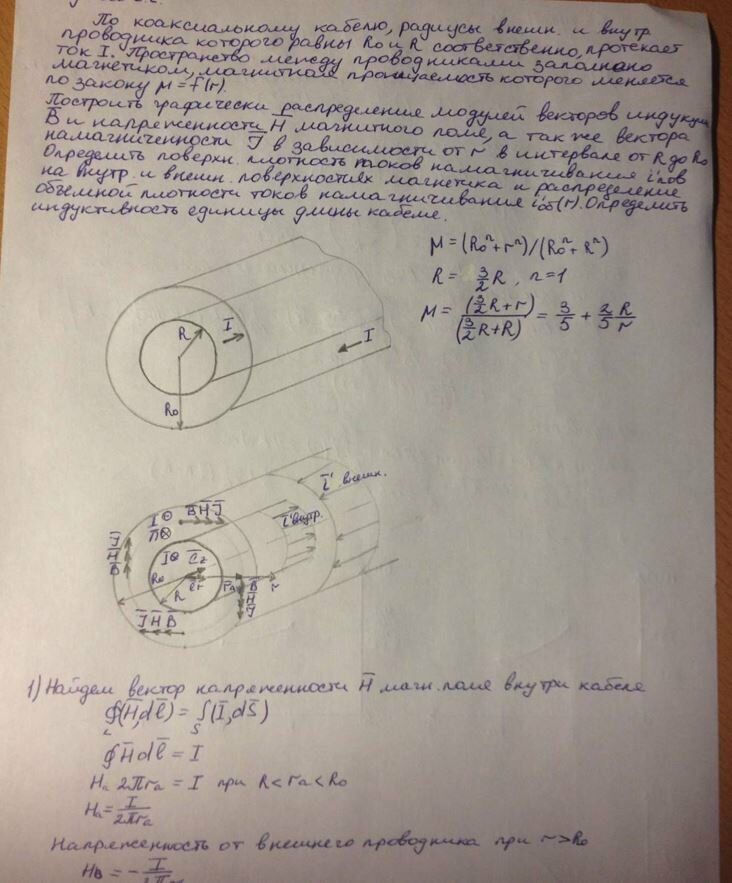 По коаксиальному кабелю, радиусы внешн. и внутр.
проводника которого равны R₀ и R соответственно, протекает
ток I. Пространство между проводниками заполнено
магнетиком, магнитная проницаемость которого меняется
по закону μ = f(r).
Построить графически распределения модулей векторов индукции
B̄ и напряженности H̄ магнитного поля, а так же вектора
намагниченности J̄ в зависимости от r в интервале от R до R₀
Определить поверхн. плотность токов намагничивания i'пов
на внутр. и внешн. поверхностях магнетика и распределение
объемной плотности токов намагничивания i'об(r). Определить
индуктивность единицы длины кабеля.
μ = (R₀ⁿ + rⁿ)/(R₀ⁿ + Rⁿ)
R = 3/2 R, n = 1
μ = (3/2 R + r)/(3/2 R + R) = 3/5 + 2/5 R/r
R
I
I
R₀
ī' внешн.
I ⊙ B̄ H̄ J̄
ī' внутр.
П⊗
J̄
H̄
B̄
I⊗
R₀
R
r
B̄
H̄
J̄
J̄ H̄ B̄
1) Найдем вектор напряженности H̄ магн. поля внутри кабеля
∮(H̄,dl̄) = ∫(Ī,dS̄)
L S
∮H̄dl̄ = I
Hₐ 2πrₐ = I при R < rₐ < R₀
Hₐ = I/2πrₐ
Напряженность от внешнего проводника при r > R₀
Hв = - I